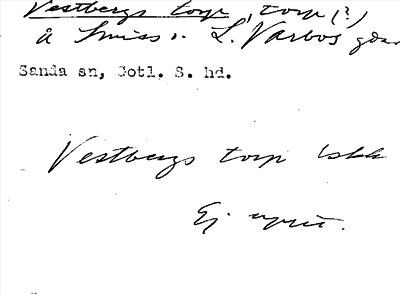 Vestbergs torp, torp (?)
å Smiss i L. Varbos
Sanda sn, Gotl. S. hd.
Vestbergs torp
Ej